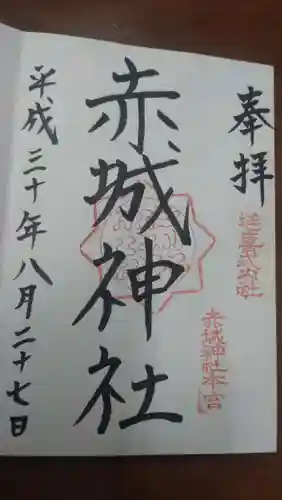 奉拝
延喜式内社
赤城神社本宮
赤城神社
平成三十年八月二十七日